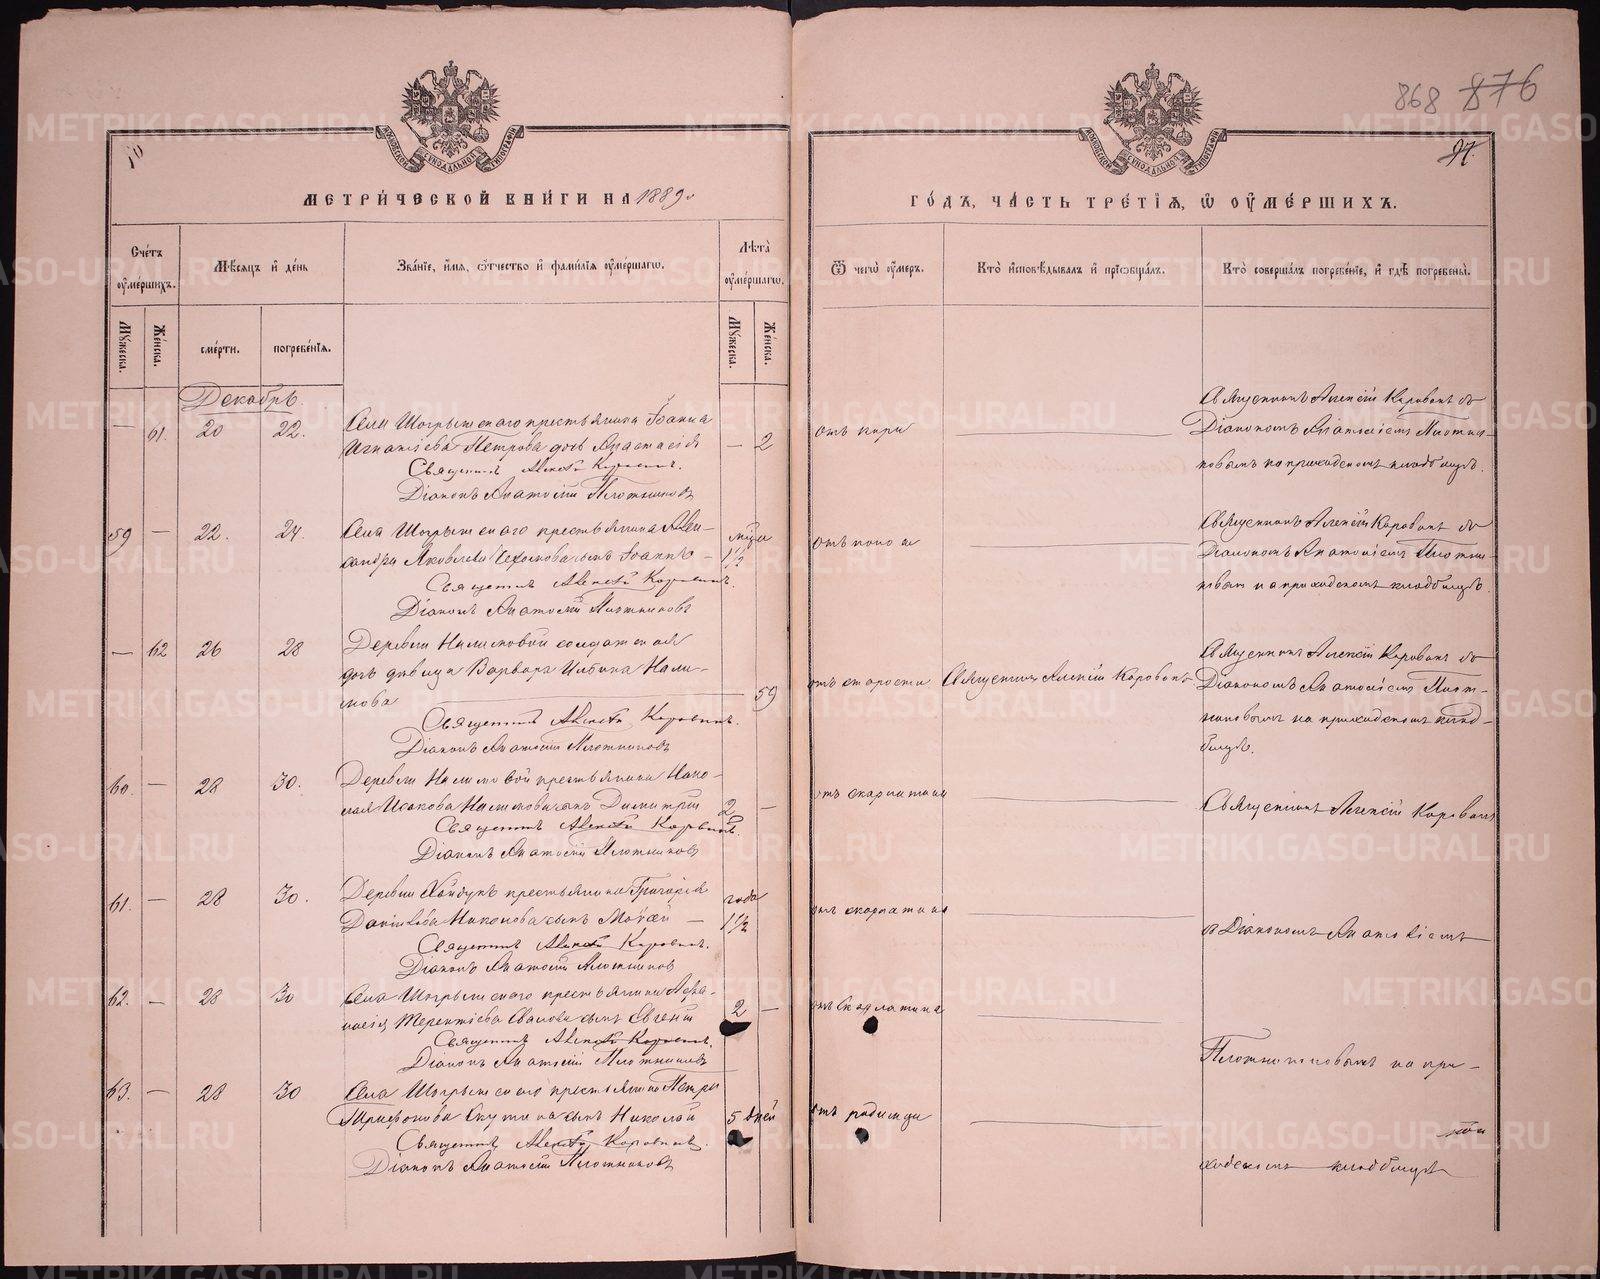 868 876
10
97.
МЕТРИ́ЧЕСКОЙ КНИ́ГИ НА 1889
ГО́ДЪ, ЧА́СТЬ ТРЕ́ТІѦ, Ѿ ОУМЕ́РШИХЪ.
Сче́тъ оуме́ршихъ.
Мѣ́сѧцъ и де́нь
Зва́ніе, и́мѧ, ѻ́тчество и фами́лїѧ оуме́ршагѡ.
Лѣ́та оуме́ршагѡ.
Ѿ чегѡ̀ оу́меръ.
Кто̀ исповѣ́дывалъ и прїѡбща́лъ.
Кто̀ соверша́лъ погребе́нїе, и гдѣ̀ погребены̀.
Му́жеска.
Же́нска.
сме́рти.
погребе́нїѧ.
Му́жеска.
Же́нска.
Декабрь.
— 61. 20 22.
Села Шогрышскаго крестьянина Іоанна
Игнатіева Петрова дочь Анастасія — 2
Священникъ Алексѣй Коровинъ.
Діаконъ Анатолій Плотниковъ
отъ кори
Священникъ Алексій Коровинъ съ
Діакономъ Анатоліемъ Плотни-
ковымъ на приходскомъ кладбищѣ.
59 — 22. 24.
Села Шогрышскаго крестьянина Алек-
сандра Яковлева сынъ Іоаннъ — 1½
Священникъ Алексѣй Коровинъ.
Діаконъ Анатолій Плотниковъ
отъ поноса
Священникъ Алексій Коровинъ съ
Діакономъ Анатоліемъ Плотни-
ковым на приходскомъ кладбищѣ.
— 62 26 28
Деревни Налимовой солдатская
дочь дѣвица Варвара Ильина Нали-
мова 59
Священникъ Алексѣй Коровинъ.
Діаконъ Анатолій Плотниковъ
отъ старости
Священникъ Алексій Коровинъ
Священникъ Алексій Коровинъ съ
Діакономъ Анатоліемъ Плот-
никовымъ на приходскомъ клад-
бищѣ.
60. — 28 30.
Деревни Налимовой крестьянина Нико-
лая Исакова Налимова сынъ Димитрій 2 —
Священникъ Алексѣй Коровинъ.
Діаконъ Анатолій Плотниковъ
отъ скарлатины
Священникъ Алексій Коровинъ
61. — 28 30.
Деревни крестьянина Григорія
Данилова Никонова сынъ Моѵсей — года 1½
Священникъ Алексѣй Коровинъ.
Діаконъ Анатолій Плотниковъ
отъ скарлатины
съ Діакономъ Анатоліемъ
62. — 28 30
Села Шогрышскаго крестьянина Афа-
насія Терентіева сынъ Евгеній 2 —
Священникъ Алексѣй Коровинъ.
Діаконъ Анатолій Плотниковъ
отъ скарлатины
Плотниковымъ на при-
63. — 28 30
Села Шогрышскаго крестьянина Петра
Трифонова сынъ Николай 5 дней
Священникъ Алексѣй Коровинъ.
Діаконъ Анатолій Плотниковъ
отъ родимца
ходскомъ кладбищѣ
METRIKI.GASO-URAL.RU